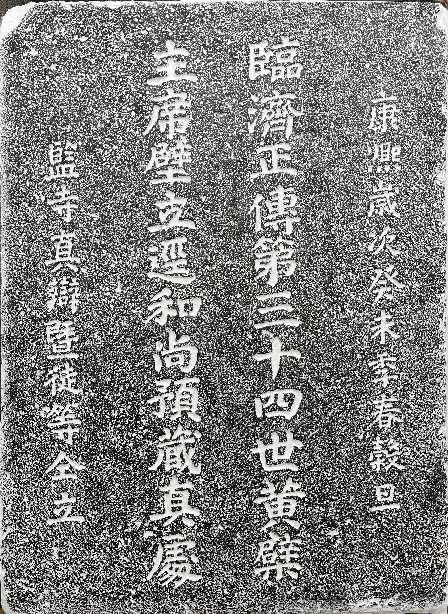 康熙歲次癸未季春穀旦
臨濟正傳第三十四世黃檗
主席壁立逕和尚預藏真處
監寺真辯暨徒等仝立